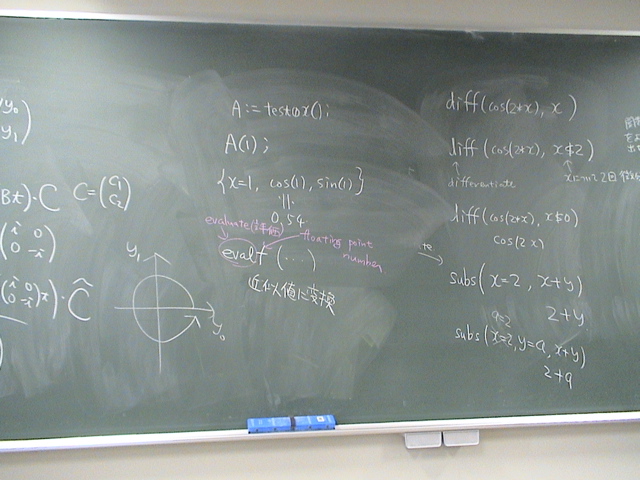 y₀
y₁
Bt)·C C=(C₁
C₂)
(i 0
0 -i)
(i 0
0 -i)·Ĉ
y₁
y₀
A := testox();
A(1);
{x=1, cos(1), sin(1)}
0.54
evaluate(評価)
floating point
number
evalf (...)
近似値に変換
diff(cos(2*x), x)
diff(cos(2*x), x$2)
differentiate
xについて2回微分
diff(cos(2*x), x$0)
cos(2x)
te
subs(x=2, x+y)
2+y
a=2
subs(x=2, y=a, x+y)
2+a